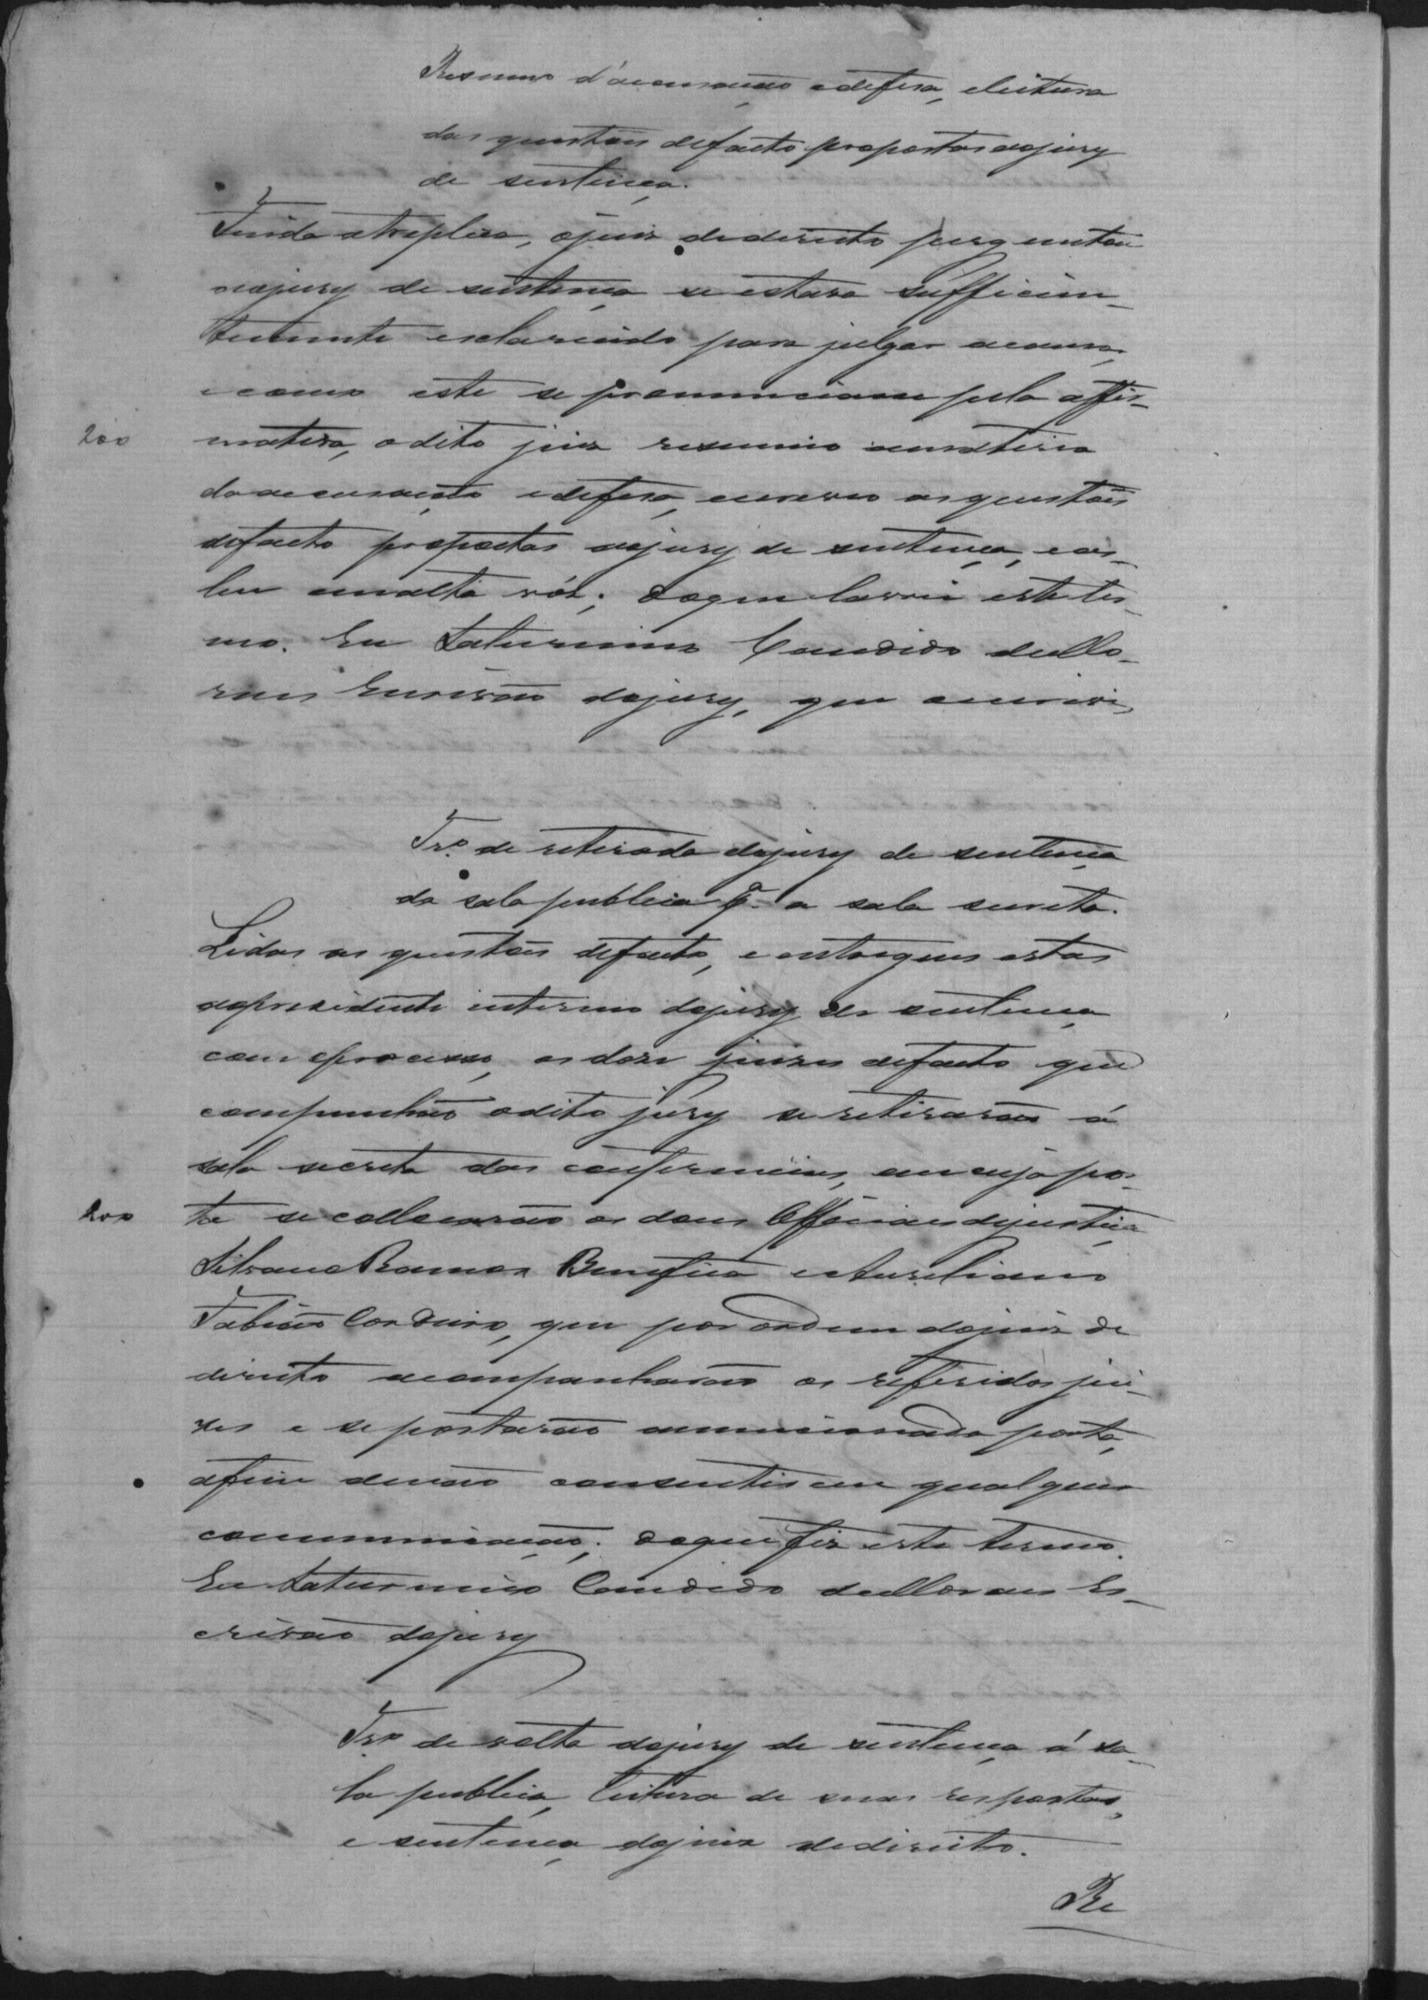 Resumo d'accusação e defesa, e leitura
das questões de facto propostas ao jury
de sentença.
Finda a treplica, o juiz de direito perguntou
ao jury de sentença se estava sufficien-
temente esclarecido para julgar a causa,
e como este se pronunciasse pela affir-
200 mativa, o dito juiz resumio a materia
da accusação e defesa, escreveu as questões
de facto propostas ao jury de sentença, e as
leu em alta vóz; do que lavrei este ter-
mo. Eu Saturnino Candido de Mo-
raes Escrivão do jury, que escrevi,
Tr.º de retirada do jury de sentença
da sala publica p.ª a sala secreta.
Lidas as questões de facto, e entregues estas
ao presidente interino do jury de sentença
com o processo, os doze juizes de facto que
compunhão o dito jury se retirarão á
sala secreta das conferencias, em cuja por-
200 ta se collocarão os dous Officiaes de justiça
Silvano Ramos e Aureliano
Fabião Cordeiro, que por ordem do juiz de
direito acompanharão os referidos jui-
zes e se postarão a mencionada porta,
afim de não consentirem qualquer
communicação; do que fiz este termo.
Eu Saturnino Candido de Moraes Es-
crivão do jury
Tr.º de volta do jury de sentença á sa-
la publica, leitura de suas respostas,
e sentença do juiz de direito.
Re